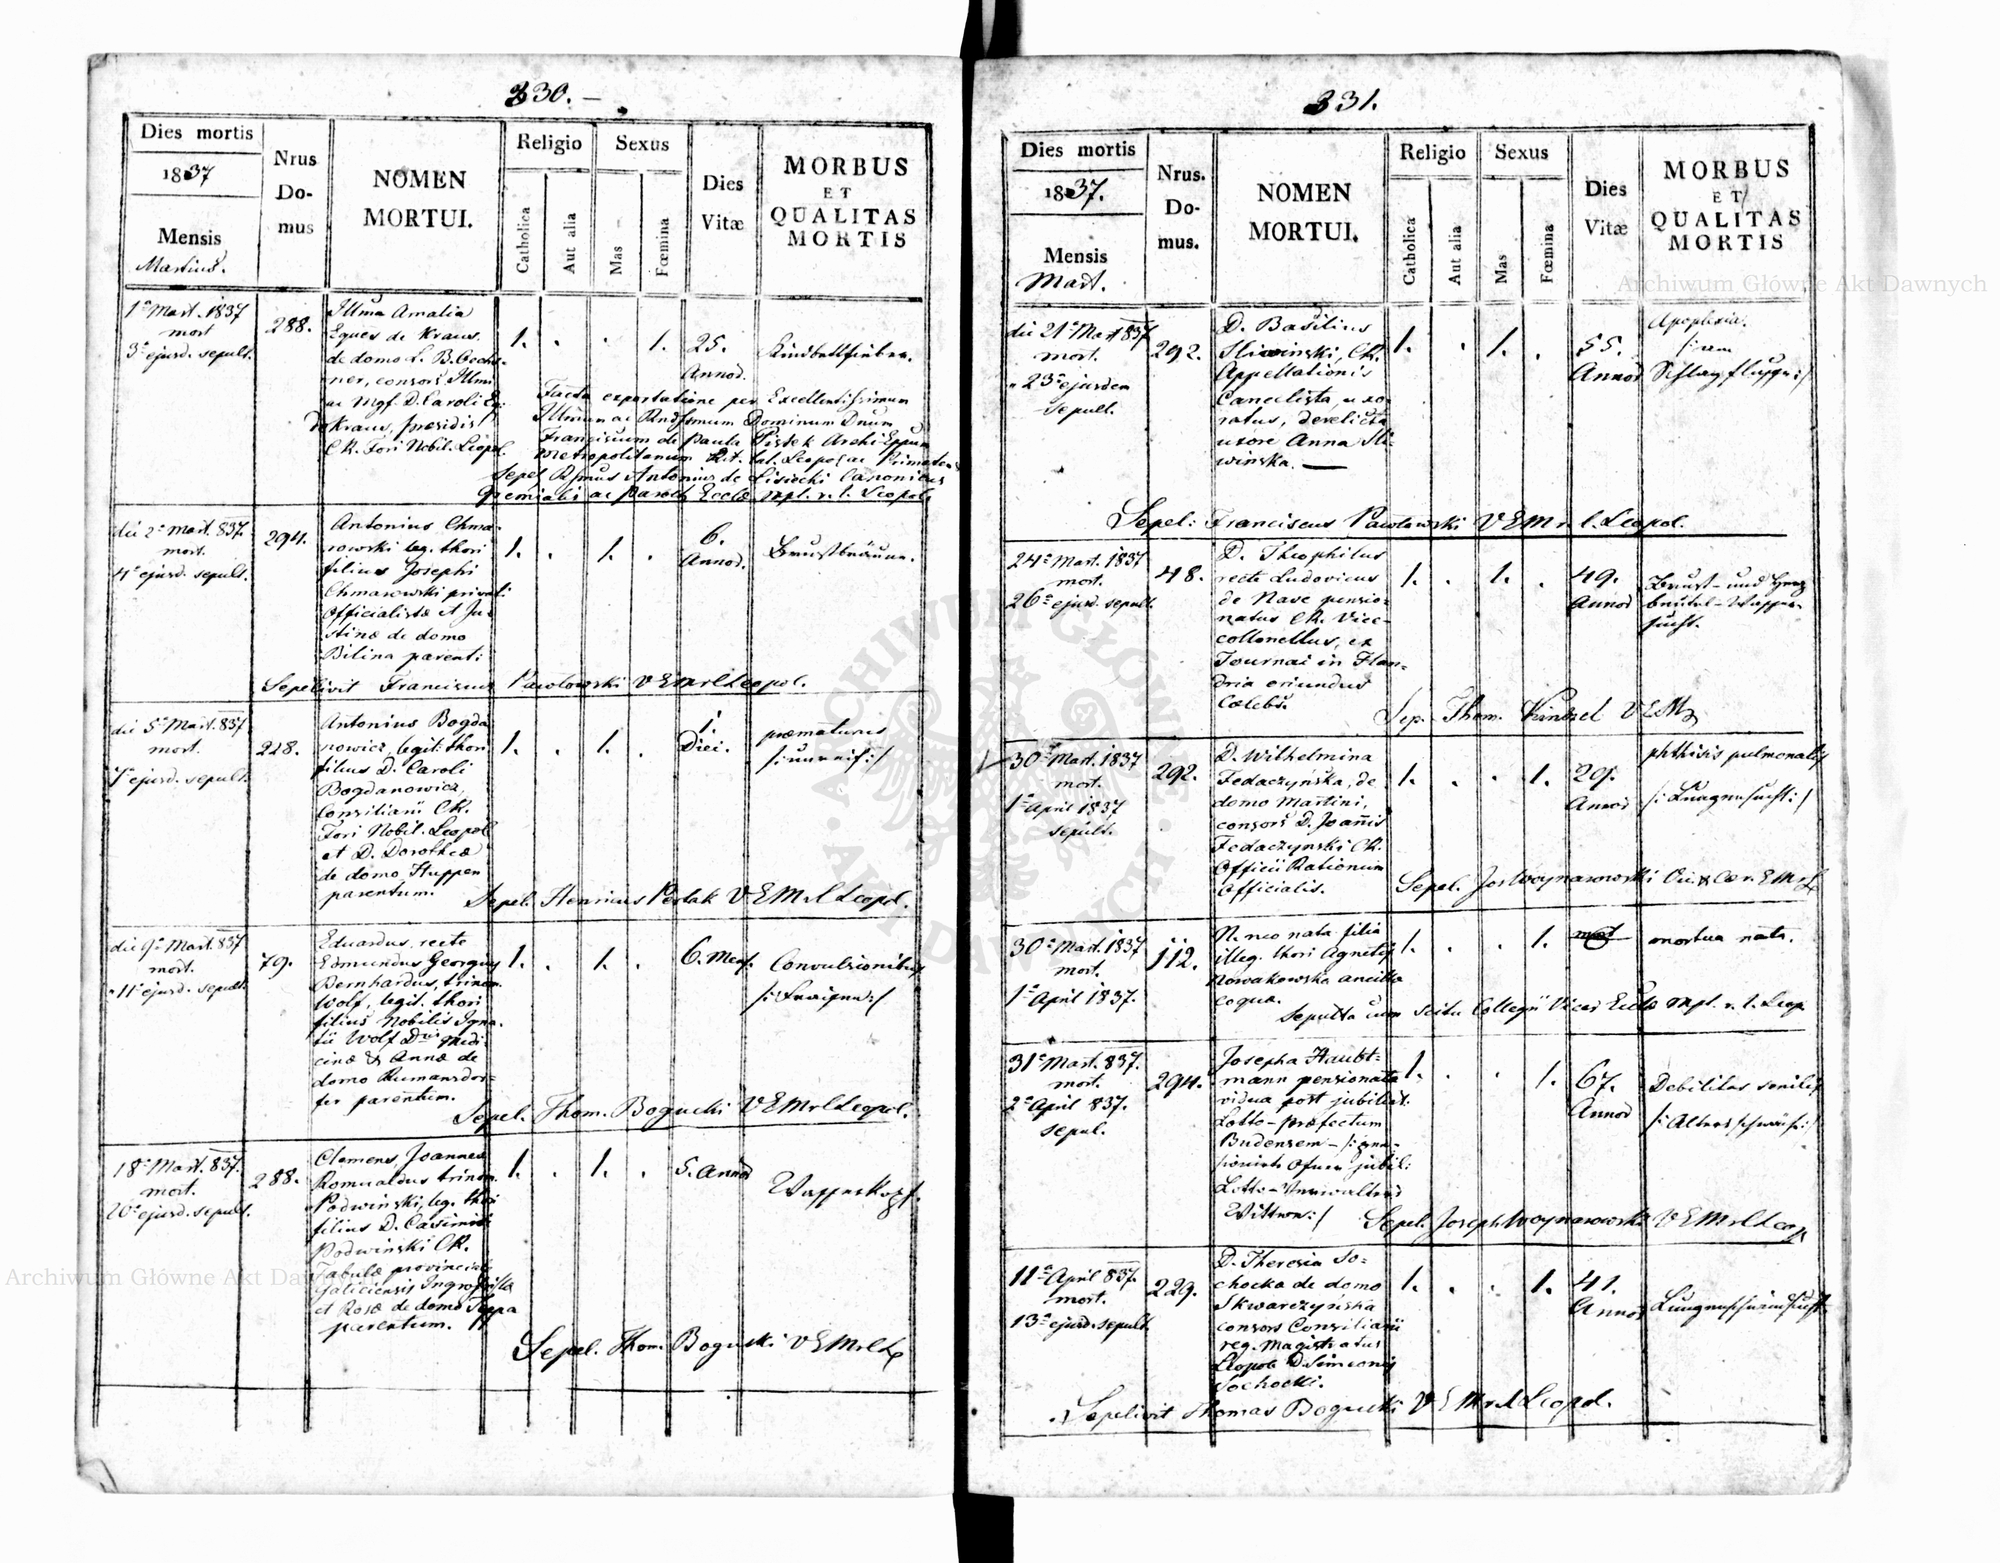 330.
Dies mortis
1837
Mensis
Martius.
Nrus
Do-
mus
NOMEN
MORTUI.
Religio
Catholica
Aut alia
Sexus
Mas
Fœmina
Dies
Vitæ
MORBUS
ET
QUALITAS
MORTIS
1a Mart. 1837
mort
3a ejusd. sepult.
288.
Illma Amalia
Eques de Kraus
de domo L. B. Gechs-
ner, consors Illmi
ac Mgf. D. Caroli Eq:
de Kraus, præsidis
CR. Fori Nobil. Leopol.
1. . . 1.
25.
Annor.
Kindbettfieber.
Facta exportatione per Excellentissimum
Illmum ac Rndssmum Dominum Dnum
Franciscum de Paula Pistek Archi Eppum
Metropolitanum R. l. Leopol ac Primatem
Sepel. Rssmus Antonius de Lisiecki Canonicus
Gremialis ac Paroch Eccle Mpl. r. l. Leopol.
die 2a Mart. 837.
mort.
4a ejusd. sepult.
294.
Antonius Chma-
rowski leg. thori
filius Josephi
Chmarowski privat:
Officialistæ et Ju-
stinæ de domo
Bilina parent:
1. . 1. .
6.
Annor.
Brustbräune.
Sepelivit Franciscus Pawlowski VEMrlLeopol.
die 5a Mart. 837
mort.
7a ejusd. sepult.
228.
Antonius Bogda
nowicz, legit: thori
filius D. Caroli
Bogdanowicz,
Consiliarii CR.
Fori Nobil. Leopol
et D. Dorotheæ
de domo Huppen
parentum.
1. . 1. .
1.
Diei.
præmaturus
/:unreif:/
Sepel. Henricus Petlak VEMrlLeopol.
die 9a Mart. 837
mort.
11a ejusd. sepult.
79.
Eduardus, recte
Edmundus Georgius
Bernhardus, trinom.
Wolf, legit. thori
filius Nobilis Igna-
tii Wolf Dris Medi-
cinæ & Annæ de
domo Rumansdor-
fer parentum.
1. . 1. .
6. Mens.
Convulsionibus
/:Fraisen:/
Sepel. Thom. Bogucki VEMrlLeopol.
18a Mart. 837.
mort.
20a ejusd. sepult.
288.
Clemens, Joannes
Romualdus trinom.
Podwinski, leg. thori
filius D. Casimiri
Podwinski CR.
Tabulæ provincial:
Galiciensis Ingrossistæ
et Rosæ de domo Teppa
parentum.
1. . 1. .
5. Annor
Wasserkopf.
Sepel. Thom. Bogucki VEMrlL
331.
Dies mortis
1837.
Mensis
Mart.
Nrus.
Do-
mus.
NOMEN
MORTUI.
Religio
Catholica
Aut alia
Sexus
Mas
Fœmina
Dies
Vitæ
MORBUS
ET
QUALITAS
MORTIS
die 21a Mart 1837
mort.
23a ejusdem
sepult.
292.
D. Basilius
Sliwinski, CR.
Appellationis
Cancelista, uxo-
ratus, derelicta
uxore Anna Sli-
winska.
1. . 1. .
55.
Annor
Apoplexia.
Schlagflusse:/
Sepel: Franciscus Pawlowski VEMr.l.Leopol.
24a Mart. 1837
mort.
26a ejusd. sepult.
48.
D. Theophilus
recte Ludovicus
de Nave pensio-
natus CR. Vice-
collonellus, ex
Tournai in Flan-
dria oriundus
Cælebs.
1. . 1. .
49.
Annor
Brust- und Herz
beutel-Wasser-
sucht.
Sep. Thom. Kindzel VEM
30a Mart. 1837
mort.
1a April 1837
sepult.
292.
D. Wilhelmina
Fedaczyńska, de
domo Martini,
consors D. Joannis
Fedaczynski CR.
Officii Rationum
Officialis.
1. . . 1.
29.
Annor
phthisis pulmonalis
/:Lungensucht:/
Sepel. Jos Woynarowski
30a Mart. 1837
mort.
1a April 1837.
112.
N. neo nata filia
illeg. thori Agnetis
Nowakowska ancilla
coqua.
1. . . 1.
mort
mortua nata.
Sepulta cum scitu Collegii Vicar Eccle Mpl. r. l. Leop.
31a Mart. 837.
mort.
2a April 837.
sepul.
294.
Josepha Haubt-
mann pensionata
vidua post jubilat:
Lotto-præfectum
Budensem -/:pen-
sionirte Ofner jubil:
Lotto-Verwalters
Wittwe:/
1. . . 1.
67.
Annor
Debilitas senilis
/:Altersschwäche:/
Sepel. Joseph Woynarowski VEMrlLeop.
11a April 837.
mort.
13a ejusd. sepult.
229.
D. Theresia So-
chocka de domo
Skwarczyńska
consors Consiliarii
reg. Magistratus
Leopol D. Simeonis
Sochocki.
1. . . 1.
41.
Annor
Lungenschwindsucht
Sepelivit Thomas Bogucki VEMrlLeopol.
Archiwum Główne Akt Dawnych
Archiwum Główne Akt Dawnych
ARCHIWUM GŁÓWNE
AKT DAWNYCH